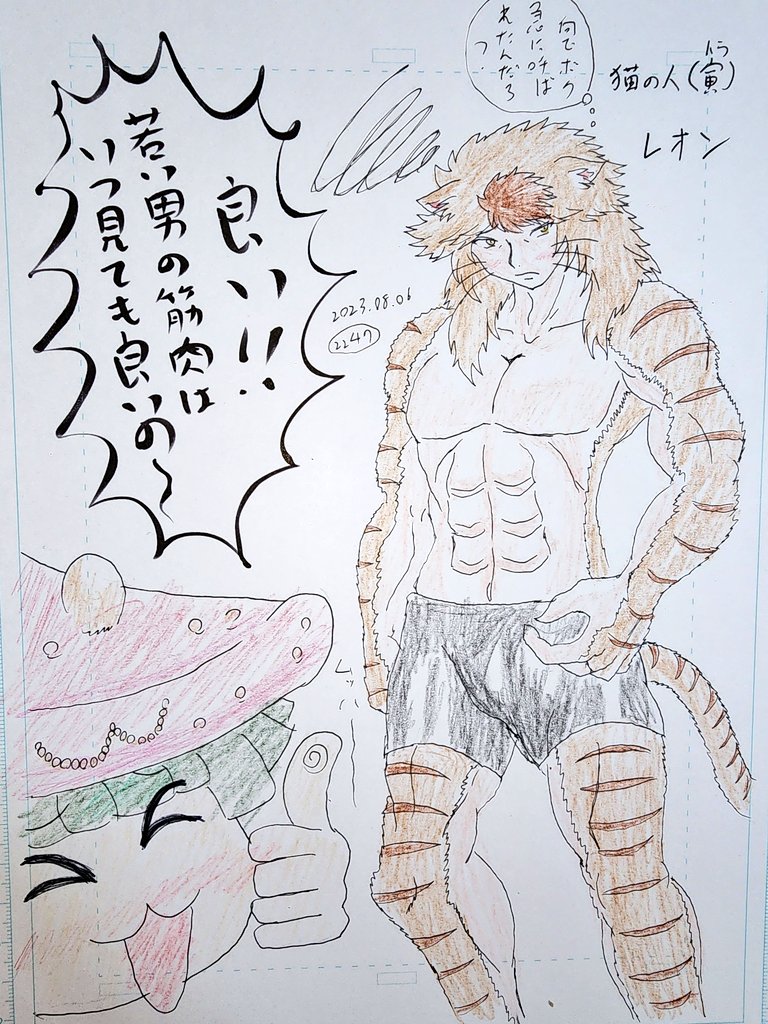 何でボク
急に呼ば
れたんだろ
う?
猫の人(寅)
トラ
レオン
良い!!
若い男の筋肉は
いつ見ても良いの～
2023.08.06
2247
ムッハー